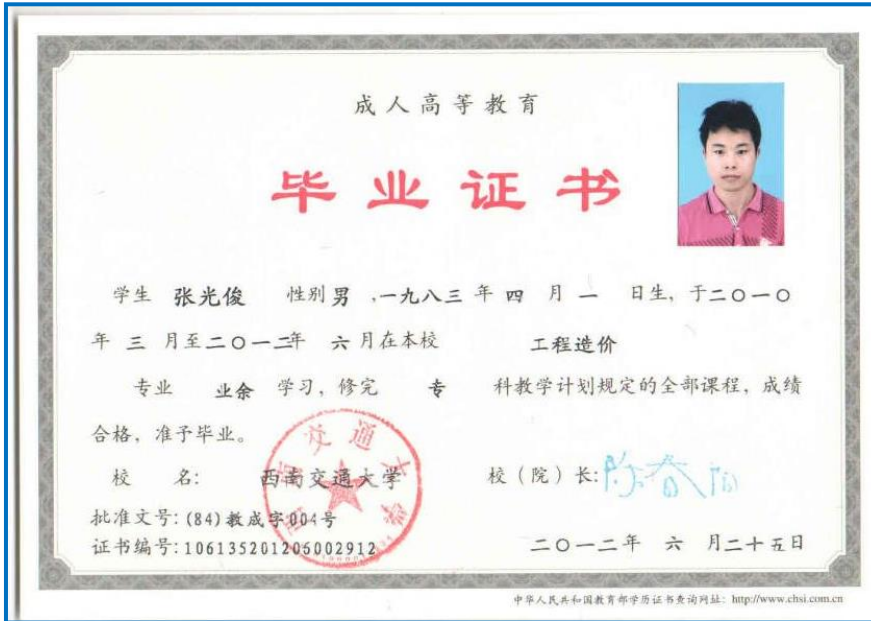 成人高等教育
毕业证书
学生 张光俊 性别 男 ,一九八三 年 四 月 一 日生，于二〇一〇
年 三 月至二〇一二年 六月在本校 工程造价
专业 业余 学习，修完 专 科教学计划规定的全部课程，成绩
合格，准予毕业。
校 名： 西南交通大学 校（院）长：
批准文号：(84)教成字004号
证书编号：106135201206002912
二〇一二年 六 月二十五日
西南交通大学
中华人民共和国教育部学历证书查询网址：http://www.chsi.com.cn